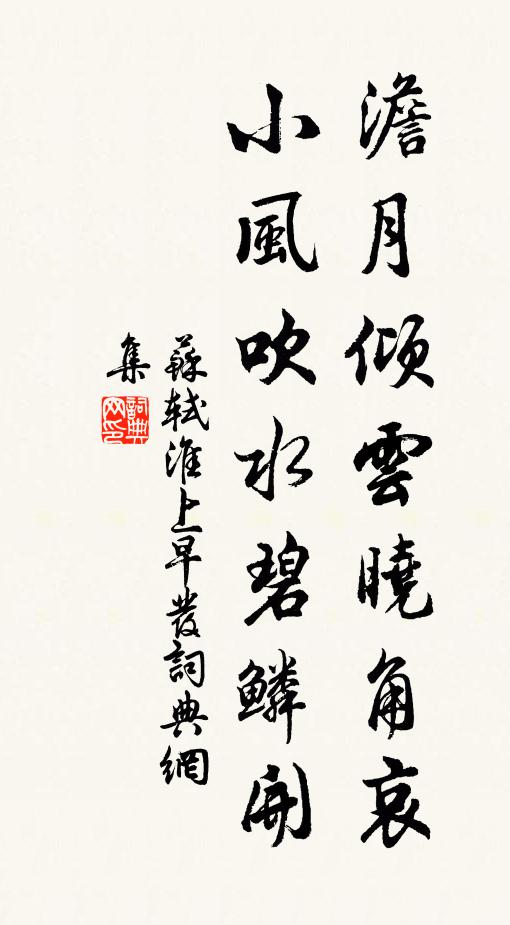 澹月傾雲曉角哀
小風吹水碧鱗開
蘇軾淮上早發詞典網
集
詞典網印